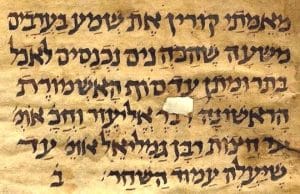 מאמתי קורין את שמע בערבים
משעה שהכהנים נכנסים לאכל
בתרומתן עד סוף האשמורת
הראשונה דבר אליעזר וחכ אומ
עד חצות רבן גמליאל אומ עד
שיעלה עמוד השחר ב